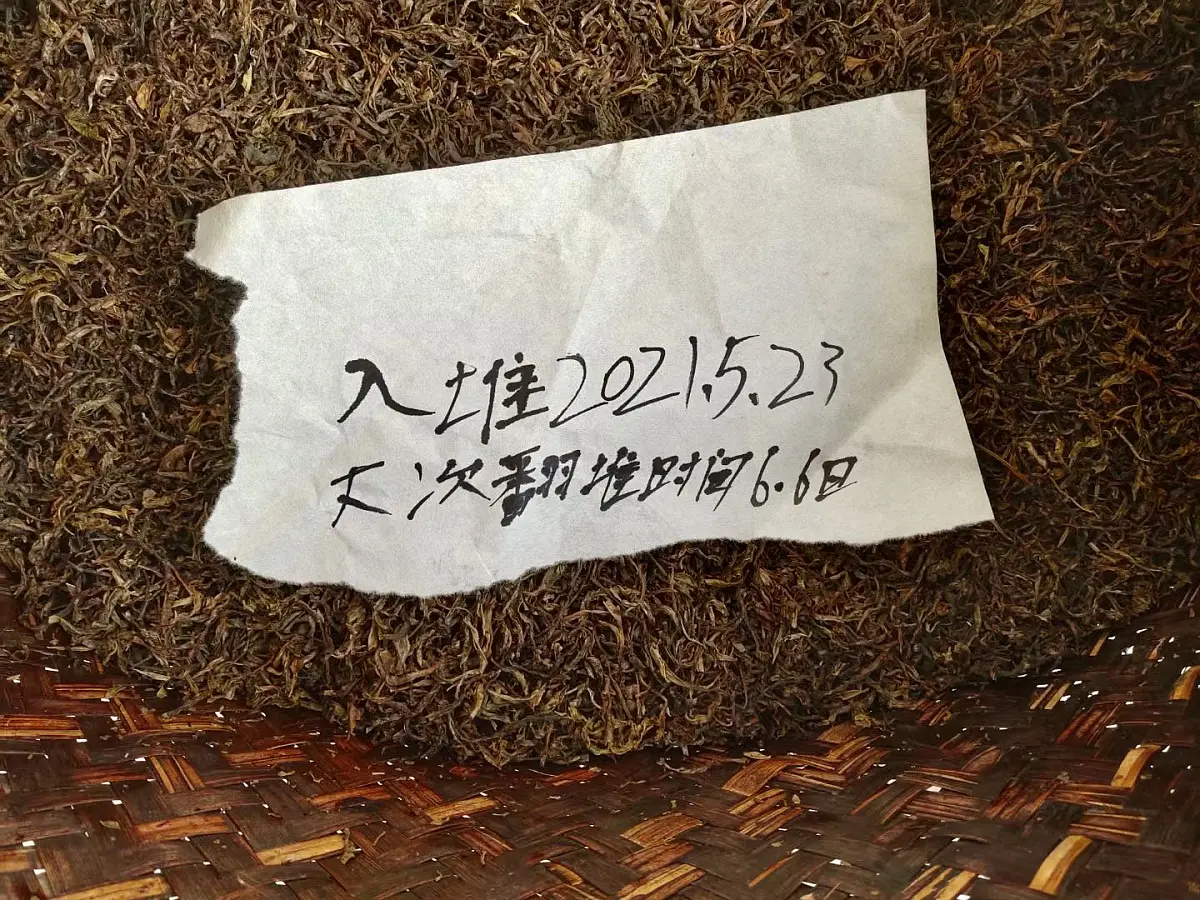 入堆2021.5.23
下次翻堆时间6.6日